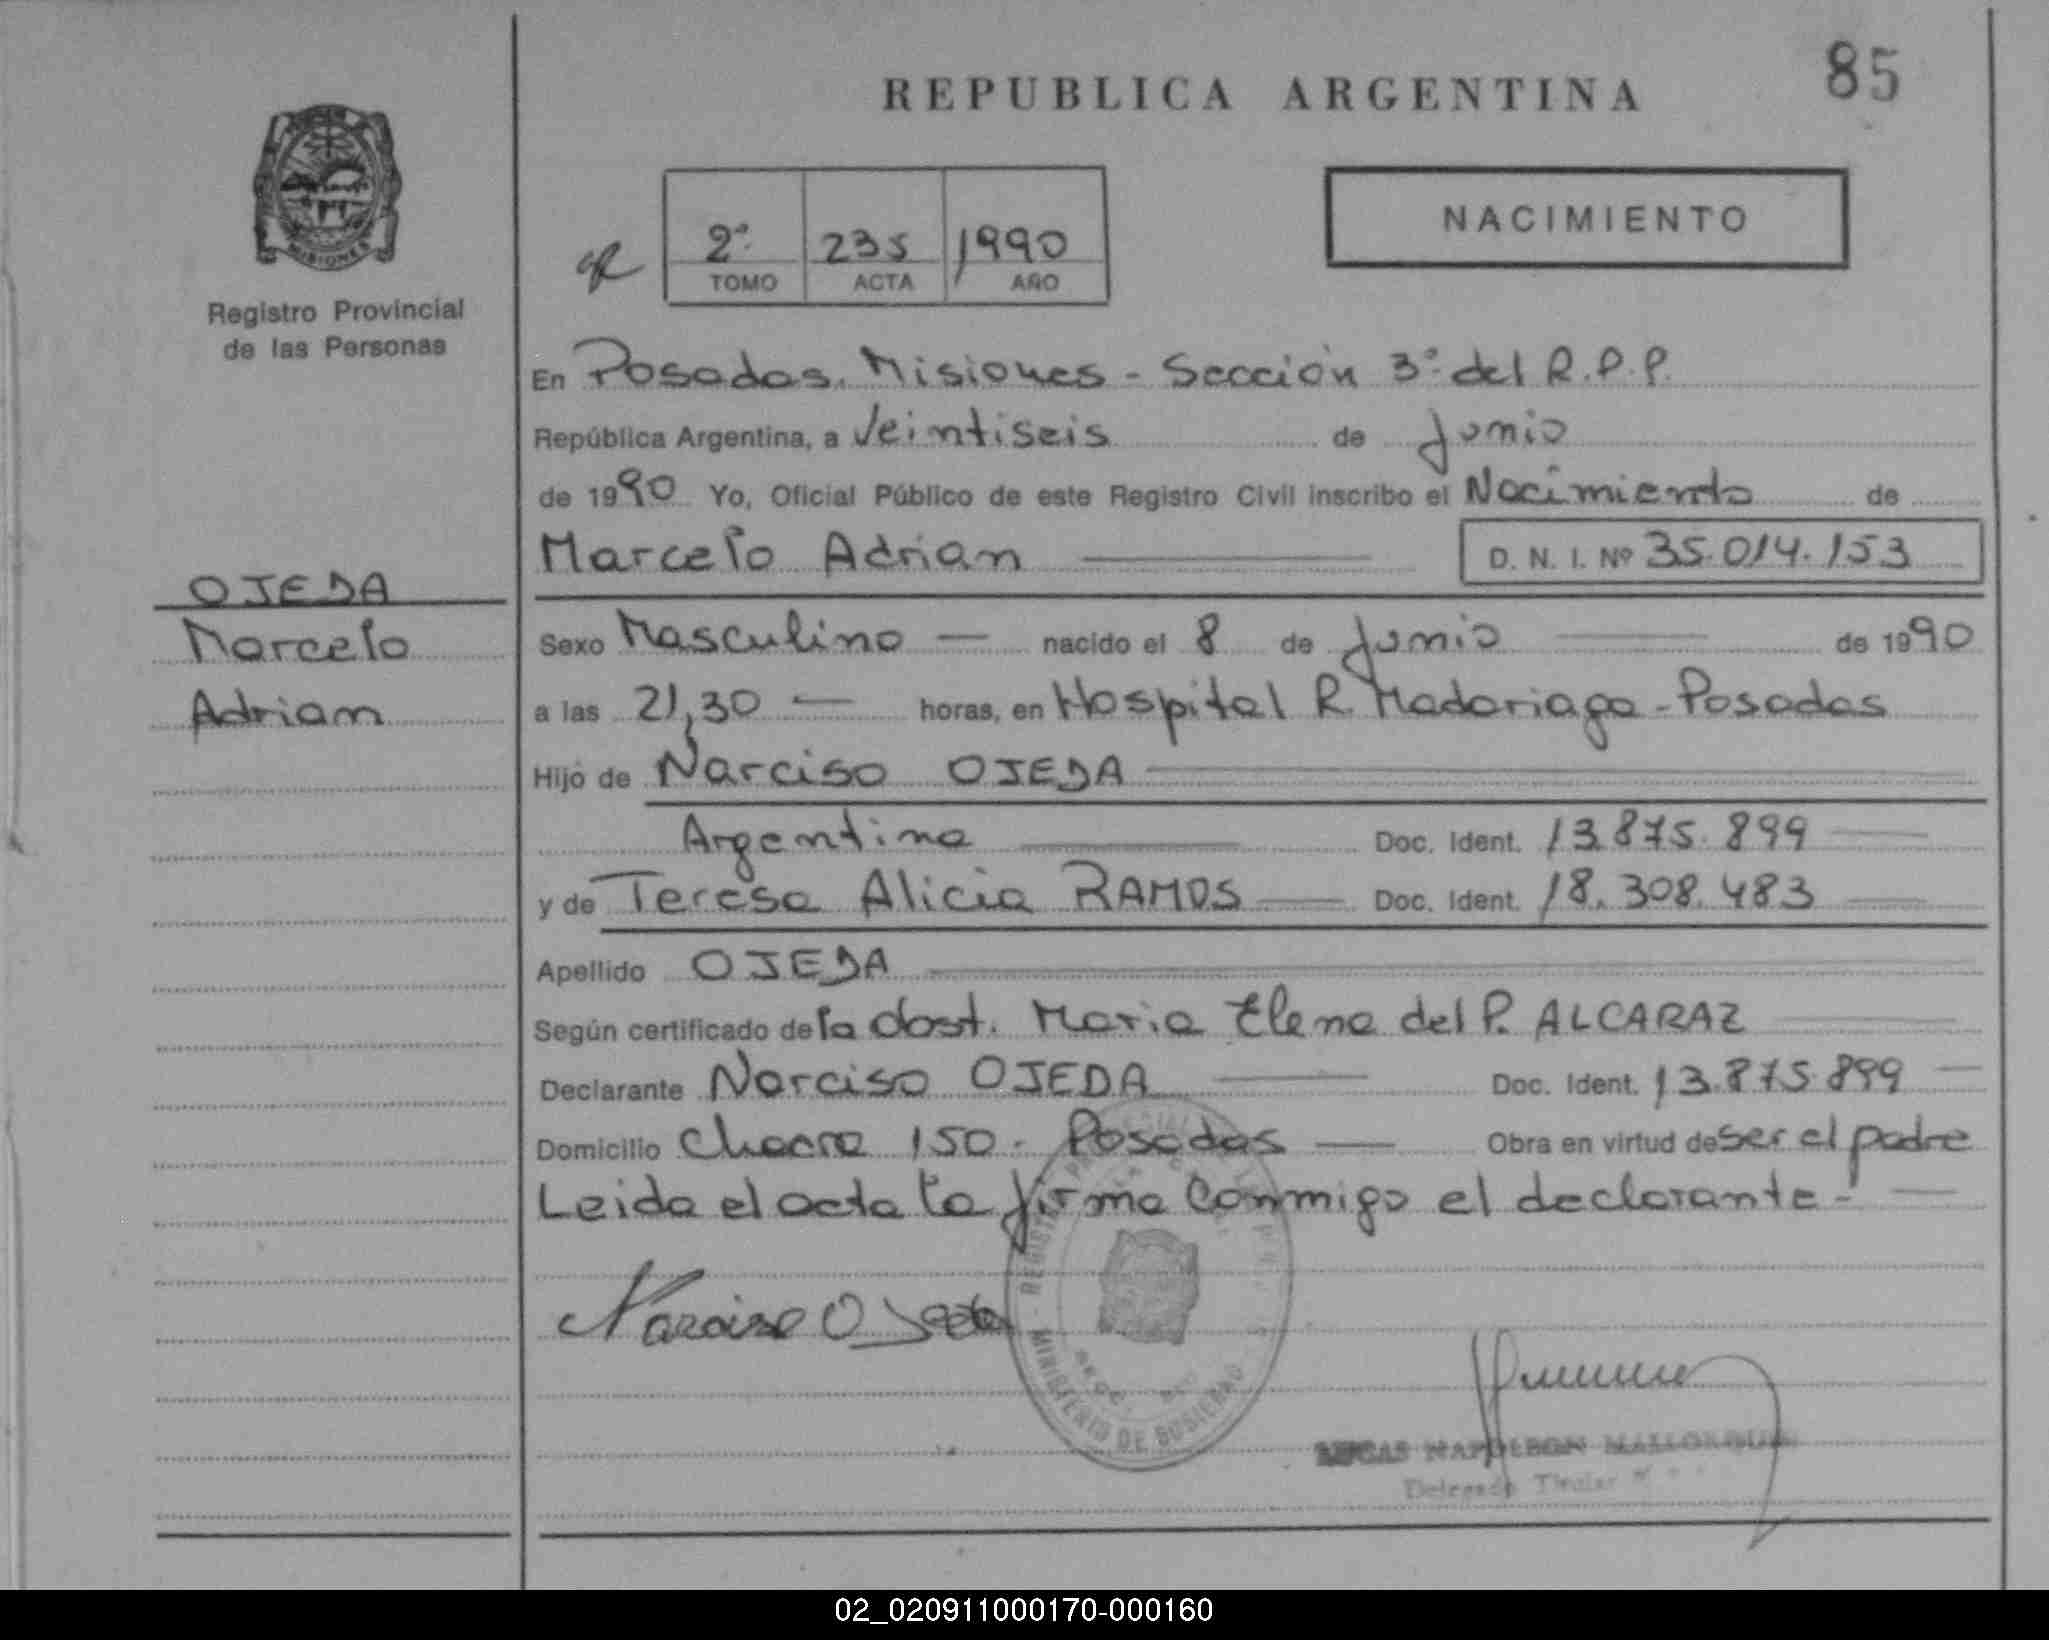 85
REPUBLICA ARGENTINA
MISIONES
Registro Provincial
de las Personas
2º 235 1990
TOMO ACTA AÑO
NACIMIENTO
En Posadas, Misiones - Sección 3º del R.P.P.
República Argentina, a Veintiseis de Junio
de 1990 Yo, Oficial Público de este Registro Civil inscribo el Nacimiento de
Marcelo Adrian D. N. I. Nº 35.014.153
OJEDA
Marcelo
Adrian
Sexo Masculino — nacido el 8 de Junio de 1990
a las 21,30 — horas, en Hospital R. Madariaga - Posadas
Hijo de Narciso OJEDA
Argentina Doc. Ident. 13.875.899
y de Teresa Alicia RAMOS — Doc. Ident. 18.308.483
Apellido OJEDA
Según certificado de la obst. Maria Elena del P. ALCARAZ
Declarante Narciso OJEDA — Doc. Ident. 13.875.899
Domicilio Chacra 150 - Posadas — Obra en virtud de ser el padre
Leida el acta la firma conmigo el declarante -
Narciso Ojeda
MINISTERIO DE GOBIERNO
NAPOLEON
Delegado Titular
02_020911000170-000160